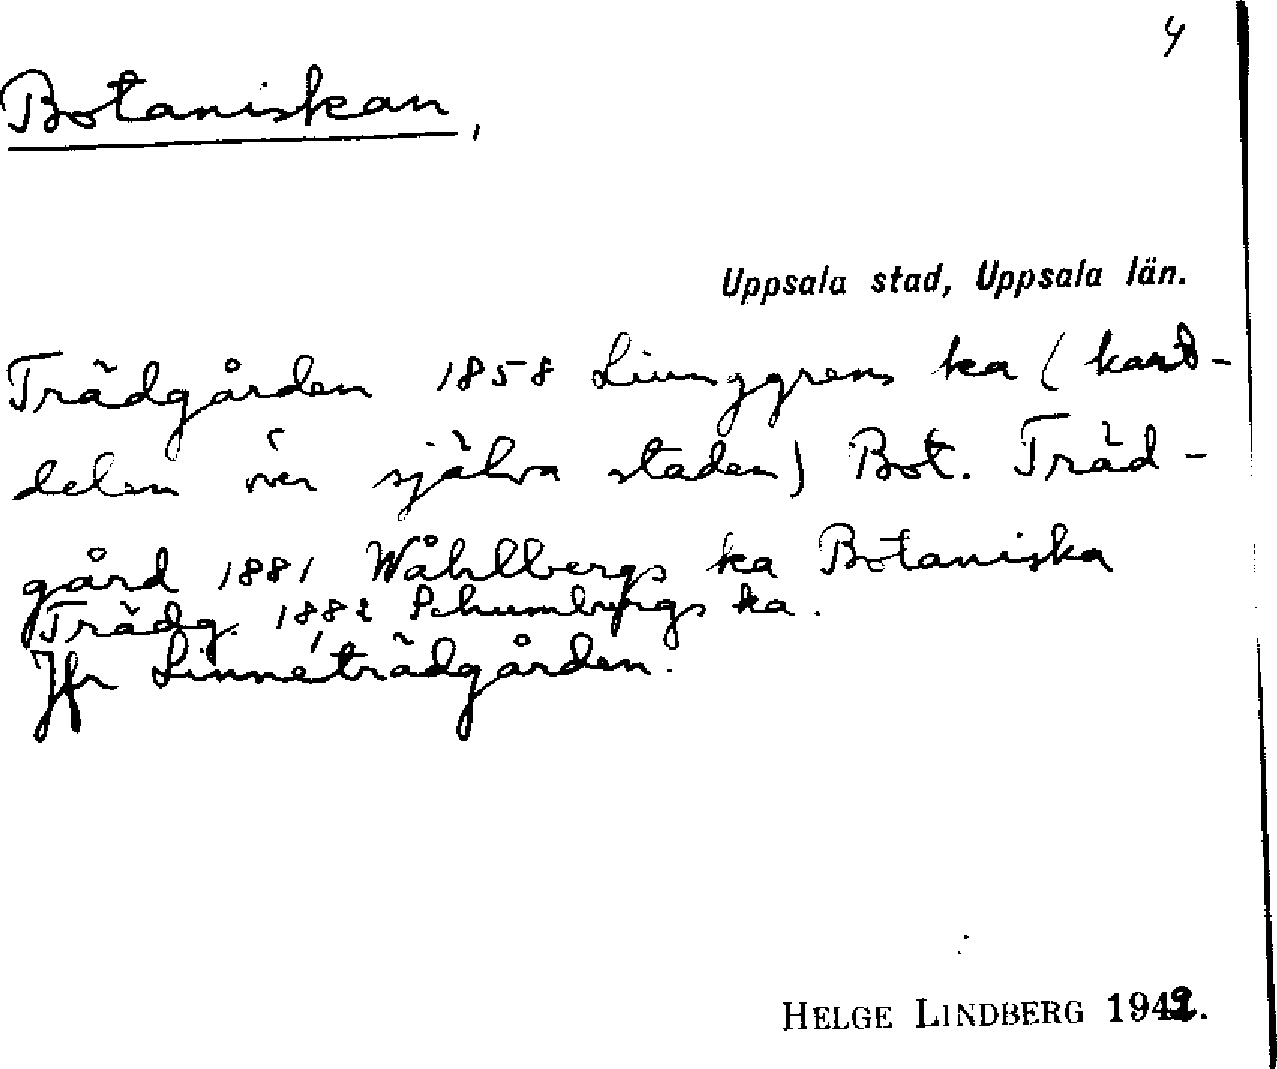 4
Botaniskan,
Uppsala stad, Uppsala län.
Trädgården 1858 Ljunggrens ka (kart-
delen över själva staden) Bot. Träd-
gård 1881 Wåhlbergs ka Botaniska
Trädg. 1882 Schumburgs ka.
Jfr Linnéträdgården.
HELGE LINDBERG 1942.